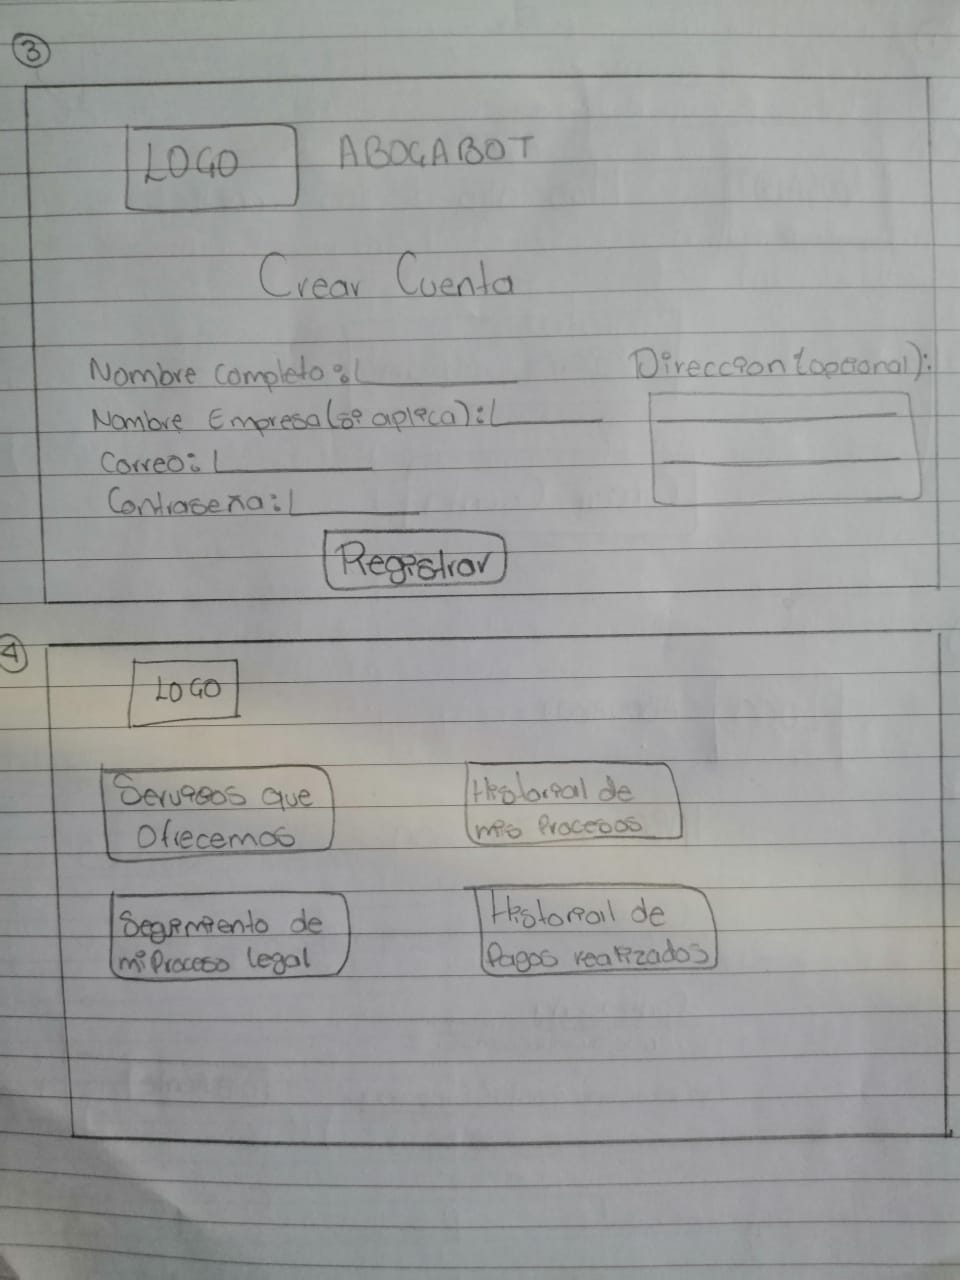 3
LOGO ABOGABOT
Crear Cuenta
Nombre completo:
Nombre Empresa (si aplica):
Correo:
Contraseña:
Direccion (opcional):
Registrar
4
LOGO
Servicios que
Ofrecemos
Historial de
mis Procesos
Segimiento de
mi Proceso legal
Historial de
Pagos realizados